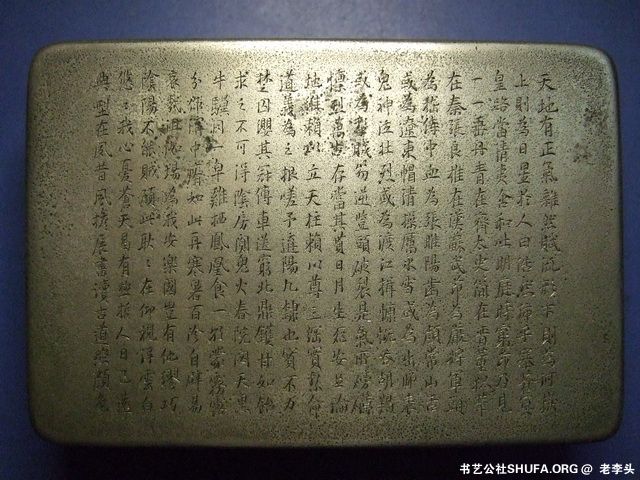 天地有正氣雜然賦流形下則為河嶽
上則為日星於人曰浩然沛乎塞蒼冥
皇路當清夷含和吐明庭時窮節乃見
一一垂丹青在齊太史簡在晉董狐筆
在秦張良椎在漢蘇武節為嚴將軍頭
為嵇侍中血為張睢陽齒為顏常山舌
或為遼東帽清操厲冰雪或為出師表
鬼神泣壯烈或為渡江楫慷慨吞胡羯
或為擊賊笏逆豎頭破裂是氣所磅礴
凜烈萬古存當其貫日月生死安足論
地維賴以立天柱賴以尊三綱實繫命
道義為之根嗟予遘陽九隸也實不力
楚囚纓其冠傳車送窮北鼎鑊甘如飴
求之不可得陰房闃鬼火春院閟天黑
牛驥同一皁雞棲鳳凰食一朝蒙霧露
分作溝中瘠如此再寒暑百沴自辟易
哀哉沮洳場為我安樂國豈有他繆巧
陰陽不能賊顧此耿〻在仰視浮雲白
悠〻我心憂蒼天曷有極哲人日已遠
典型在夙昔風檐展書讀古道照顏色
书艺公社SHUFA.ORG @ 老李头